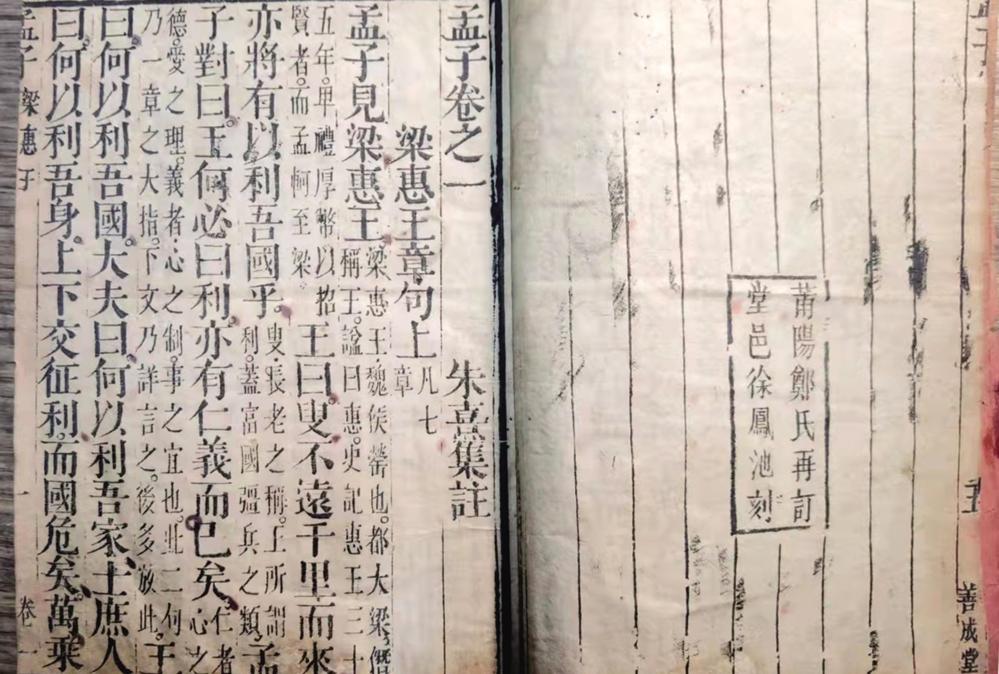 五 善成堂
莆陽鄭氏再訂
堂邑徐鳳池刻
孟子卷之一 朱熹集註
梁惠王章句上 凡七章
孟子見梁惠王 梁惠王魏侯罃也。都大梁。僭稱王。諡曰惠。史記惠王三十
五年。卑禮厚幣以招賢者。而孟軻至梁。王曰叟不遠千里而來
亦將有以利吾國乎。叟長老之稱。上所謂利。蓋富國彊兵之類。孟
子對曰。王何必曰利。亦有仁義而已矣。仁者心之
德。愛之理。義者。心之制。事之宜也。此二句乃一章之大指。下文乃詳言之。後多放此。王
曰。何以利吾國。大夫曰。何以利吾家。士庶人
曰。何以利吾身。上下交征利。而國危矣。萬乘
孟子 梁惠 一 卷一